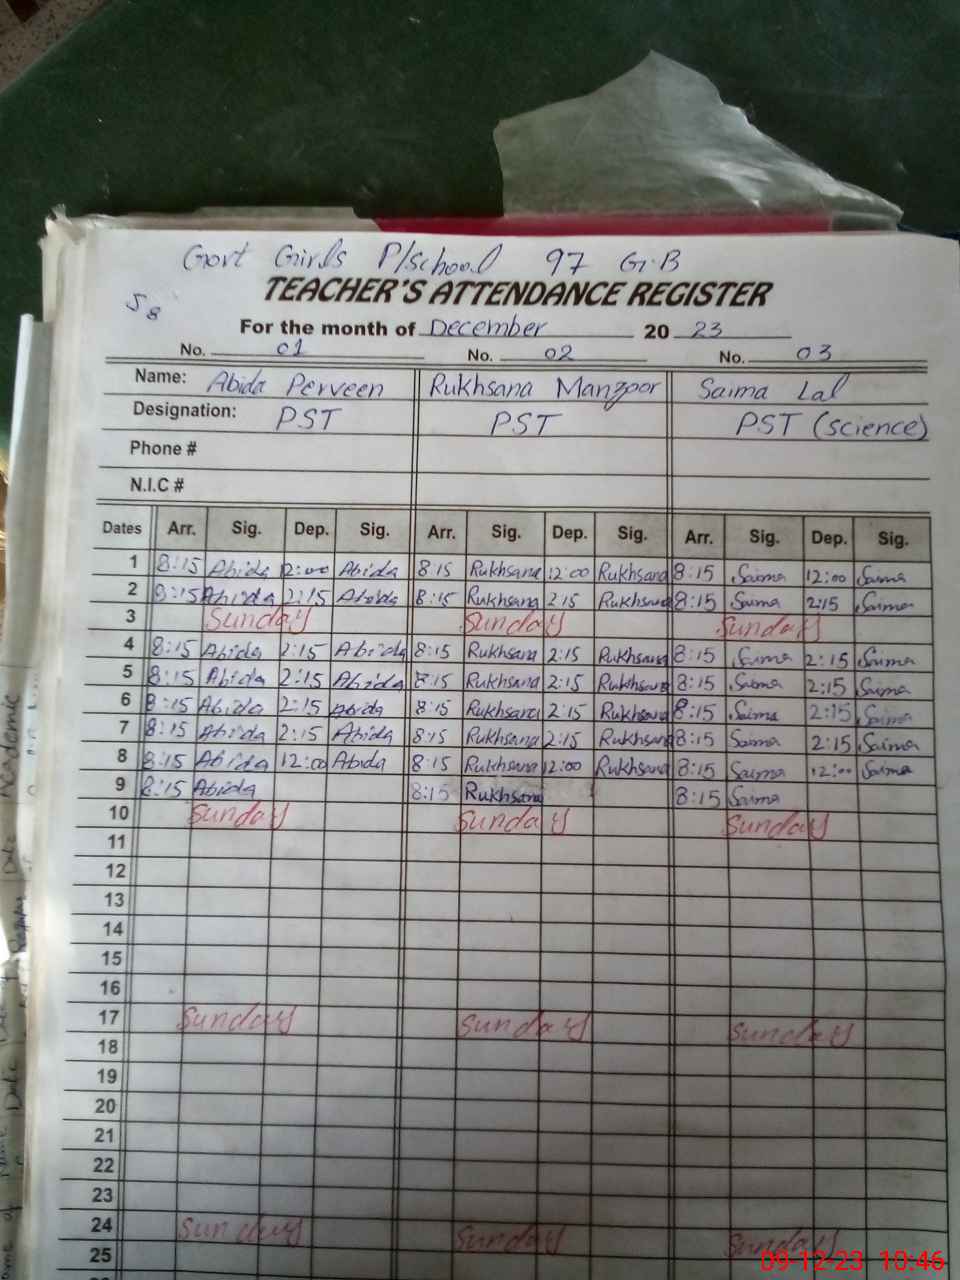 Govt Girls P/school 97 G.B
TEACHER'S ATTENDANCE REGISTER
For the month of December 2023
No. 01 No. 02 No. 03
Name: Abida Perveen Rukhsana Manzoor Saima Lal
Designation: PST PST PST (science)
Phone #
N.I.C #
Dates Arr. Sig. Dep. Sig. Arr. Sig. Dep. Sig. Arr. Sig. Dep. Sig.
1 8:15 Abida 12:00 Abida 8:15 Rukhsana 12:00 Rukhsana 8:15 Saima 12:00 Saima
2 8:15 Abida 2:15 Abida 8:15 Rukhsana 2:15 Rukhsana 8:15 Saima 2:15 Saima
3 Sunday Sunday Sunday
4 8:15 Abida 2:15 Abida 8:15 Rukhsana 2:15 Rukhsana 8:15 Saima 2:15 Saima
5 8:15 Abida 2:15 Abida 8:15 Rukhsana 2:15 Rukhsana 8:15 Saima 2:15 Saima
6 8:15 Abida 2:15 Abida 8:15 Rukhsana 2:15 Rukhsana 8:15 Saima 2:15 Saima
7 8:15 Abida 2:15 Abida 8:15 Rukhsana 2:15 Rukhsana 8:15 Saima 2:15 Saima
8 8:15 Abida 12:00 Abida 8:15 Rukhsana 12:00 Rukhsana 8:15 Saima 12:00 Saima
9 8:15 Abida 8:15 Rukhsana 8:15 Saima
10 Sunday Sunday Sunday
11
12
13
14
15
16
17 Sunday Sunday Sunday
18
19
20
21
22
23
24 Sunday Sunday Sunday
25
09-12-23 10:46